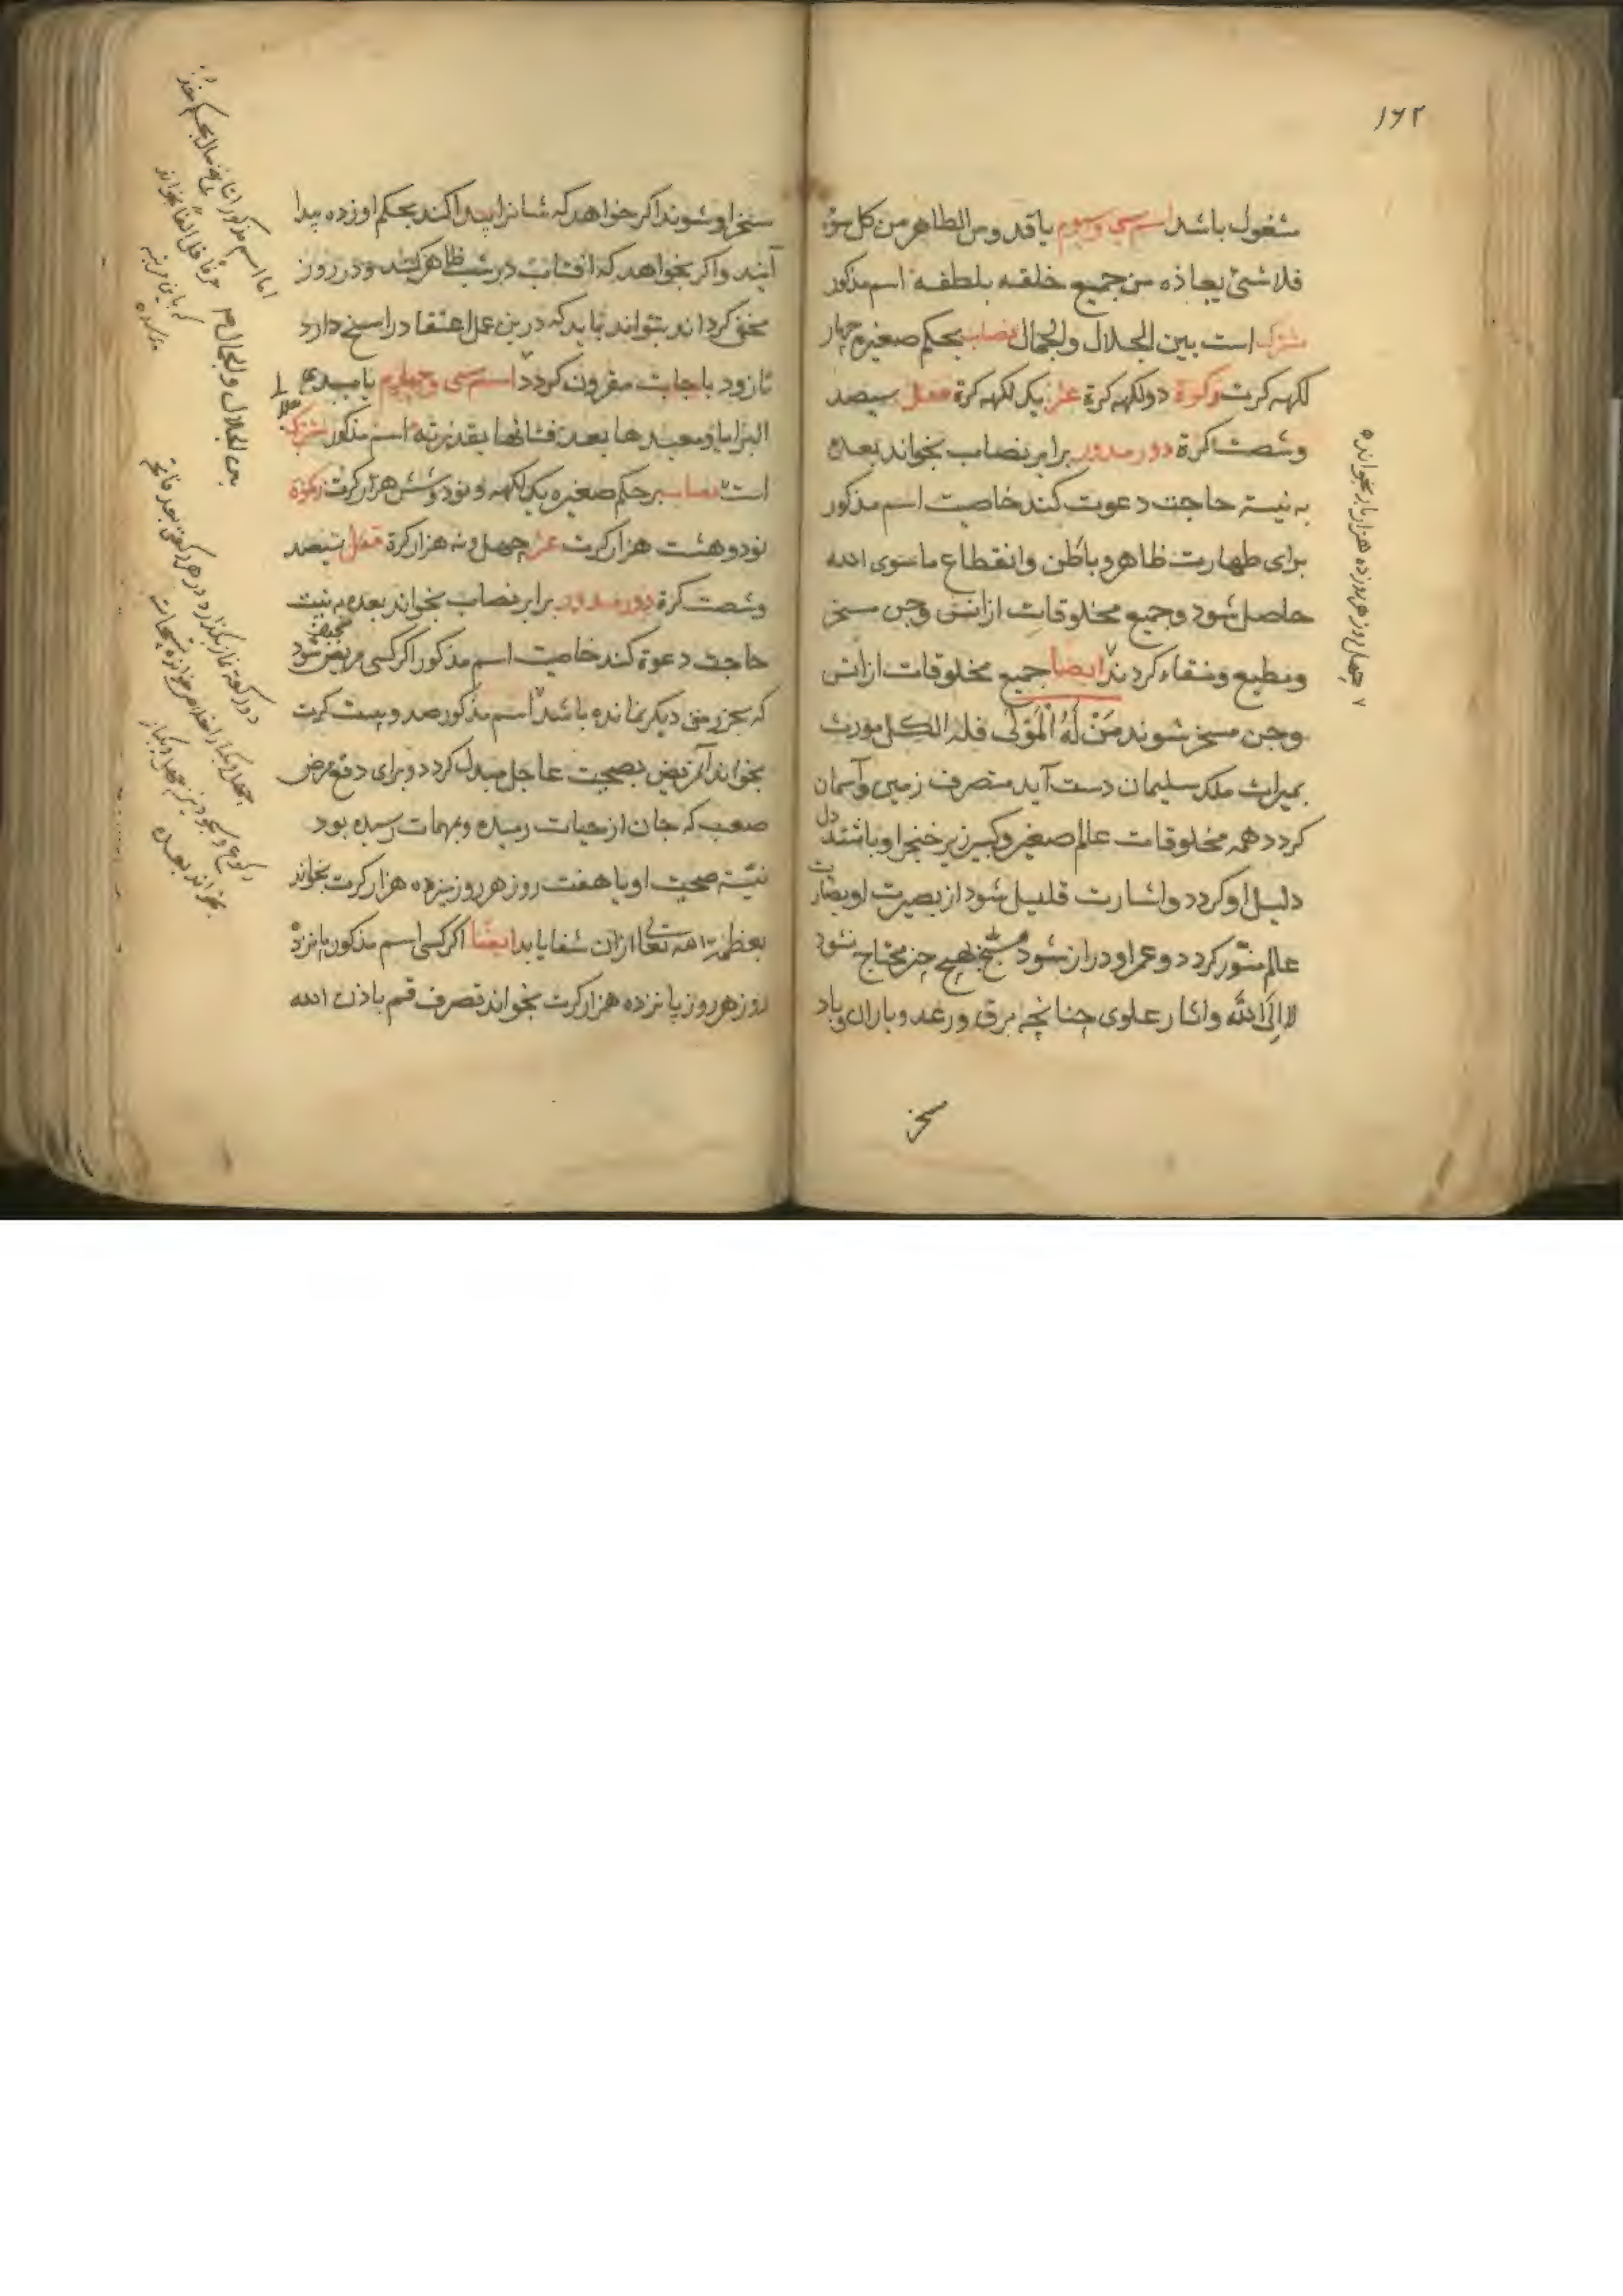 ۱۶۲
مشغول باشد اسم سی و سوم یا قدوس الطاهر من کل سوء
فلا شئ یعاذه من جمیع خلقه بلطفه اسم مذکور
مشترک است بین الجلال والجمال نصاب بحکم صغیر چهار
لکهه کرت زکوة دو لکهه کرة عشر یک لکهه کرة قفل سیصد
وشصت کرة دور مدور برابر نصاب بخواند بعده
به نیت حاجت دعوت کند خاصیت اسم مذکور
برای طهارت ظاهر و باطن وانقطاع ماسوی الله
حاصل شود و جمیع مخلوقات از انس و جن مسخر
ومطیع ومنقاد کردند ایضا جمیع مخلوقات از انس
وجن مسخر شوند مَنْ لَهُ الْمَوْلٰی فله الکل مورث
بمیراث ملک سلیمان دست آید متصرف زمین وآسمان
کردد همه مخلوقات عالم صغیر وکبیر زیر خنجر او باشند دل
دلیل او کردد واشارت قلیل شود از بصیرت او بصارت
عالم منور کردد وعمر او دراز شود بهیچ چیز محتاج نشود
الا الی الله واثار علوی چنانچه برق ورعد وباران وباد
مسخر
چهل روز هر روز ده هزار بار بخوانده
مسخر او شوند اکر خواهد که شانرا پیدا کند بحکم او زده پیدا
آیند واکر بخواهد که افتاب در شب ظاهر کند ودر روز
مخفی کرداند بتواند باید که درین عمل اعتقاد راسخ دارد
تا زود باجابت مقرون کردد اسم سی وچهارم یا مبدئ
البرایا ومعیدها بعد فنائها بقدرته اسم مذکور مشترک
است نصاب بر حکم صغیره یک لکهه ونود وشش هزار کرت زکوة
نود وهشت هزار کرت عشر چهل ونه هزار کرة قفل سیصد
وشصت کرة دور مدور برابر نصاب بخواند بعده به نیت
حاجت دعوة کند خاصیت اسم مذکور اکر کسی مریض شود
که بجز رمق دیکر نمانده باشد اسم مذکور صد وبیست کرت
بخواند آن مریض بصحت عاجل مبدل کردد وبرای دفع مرض
صعب که جان از حیات رمیده وبهمات رسیده بود
نیت صحت او یا هفت روز هر روز نیزده هزار کرت بخواند
بعظمة الله تعالی ازان شفا یابد ایضا اکر کسی اسم مذکور پانزده
روز هر روز پانزده هزار کرت بخواند تصرف قم باذن الله
اما اسم مذکور
بین الجلال والجمال
دو رکعة نماز بکذارد در هر رکعتی بعد فاتحه
چهل ویکبار اخلاص
رکوع وسجود نیز چهل ویکبار
بخواند بعده